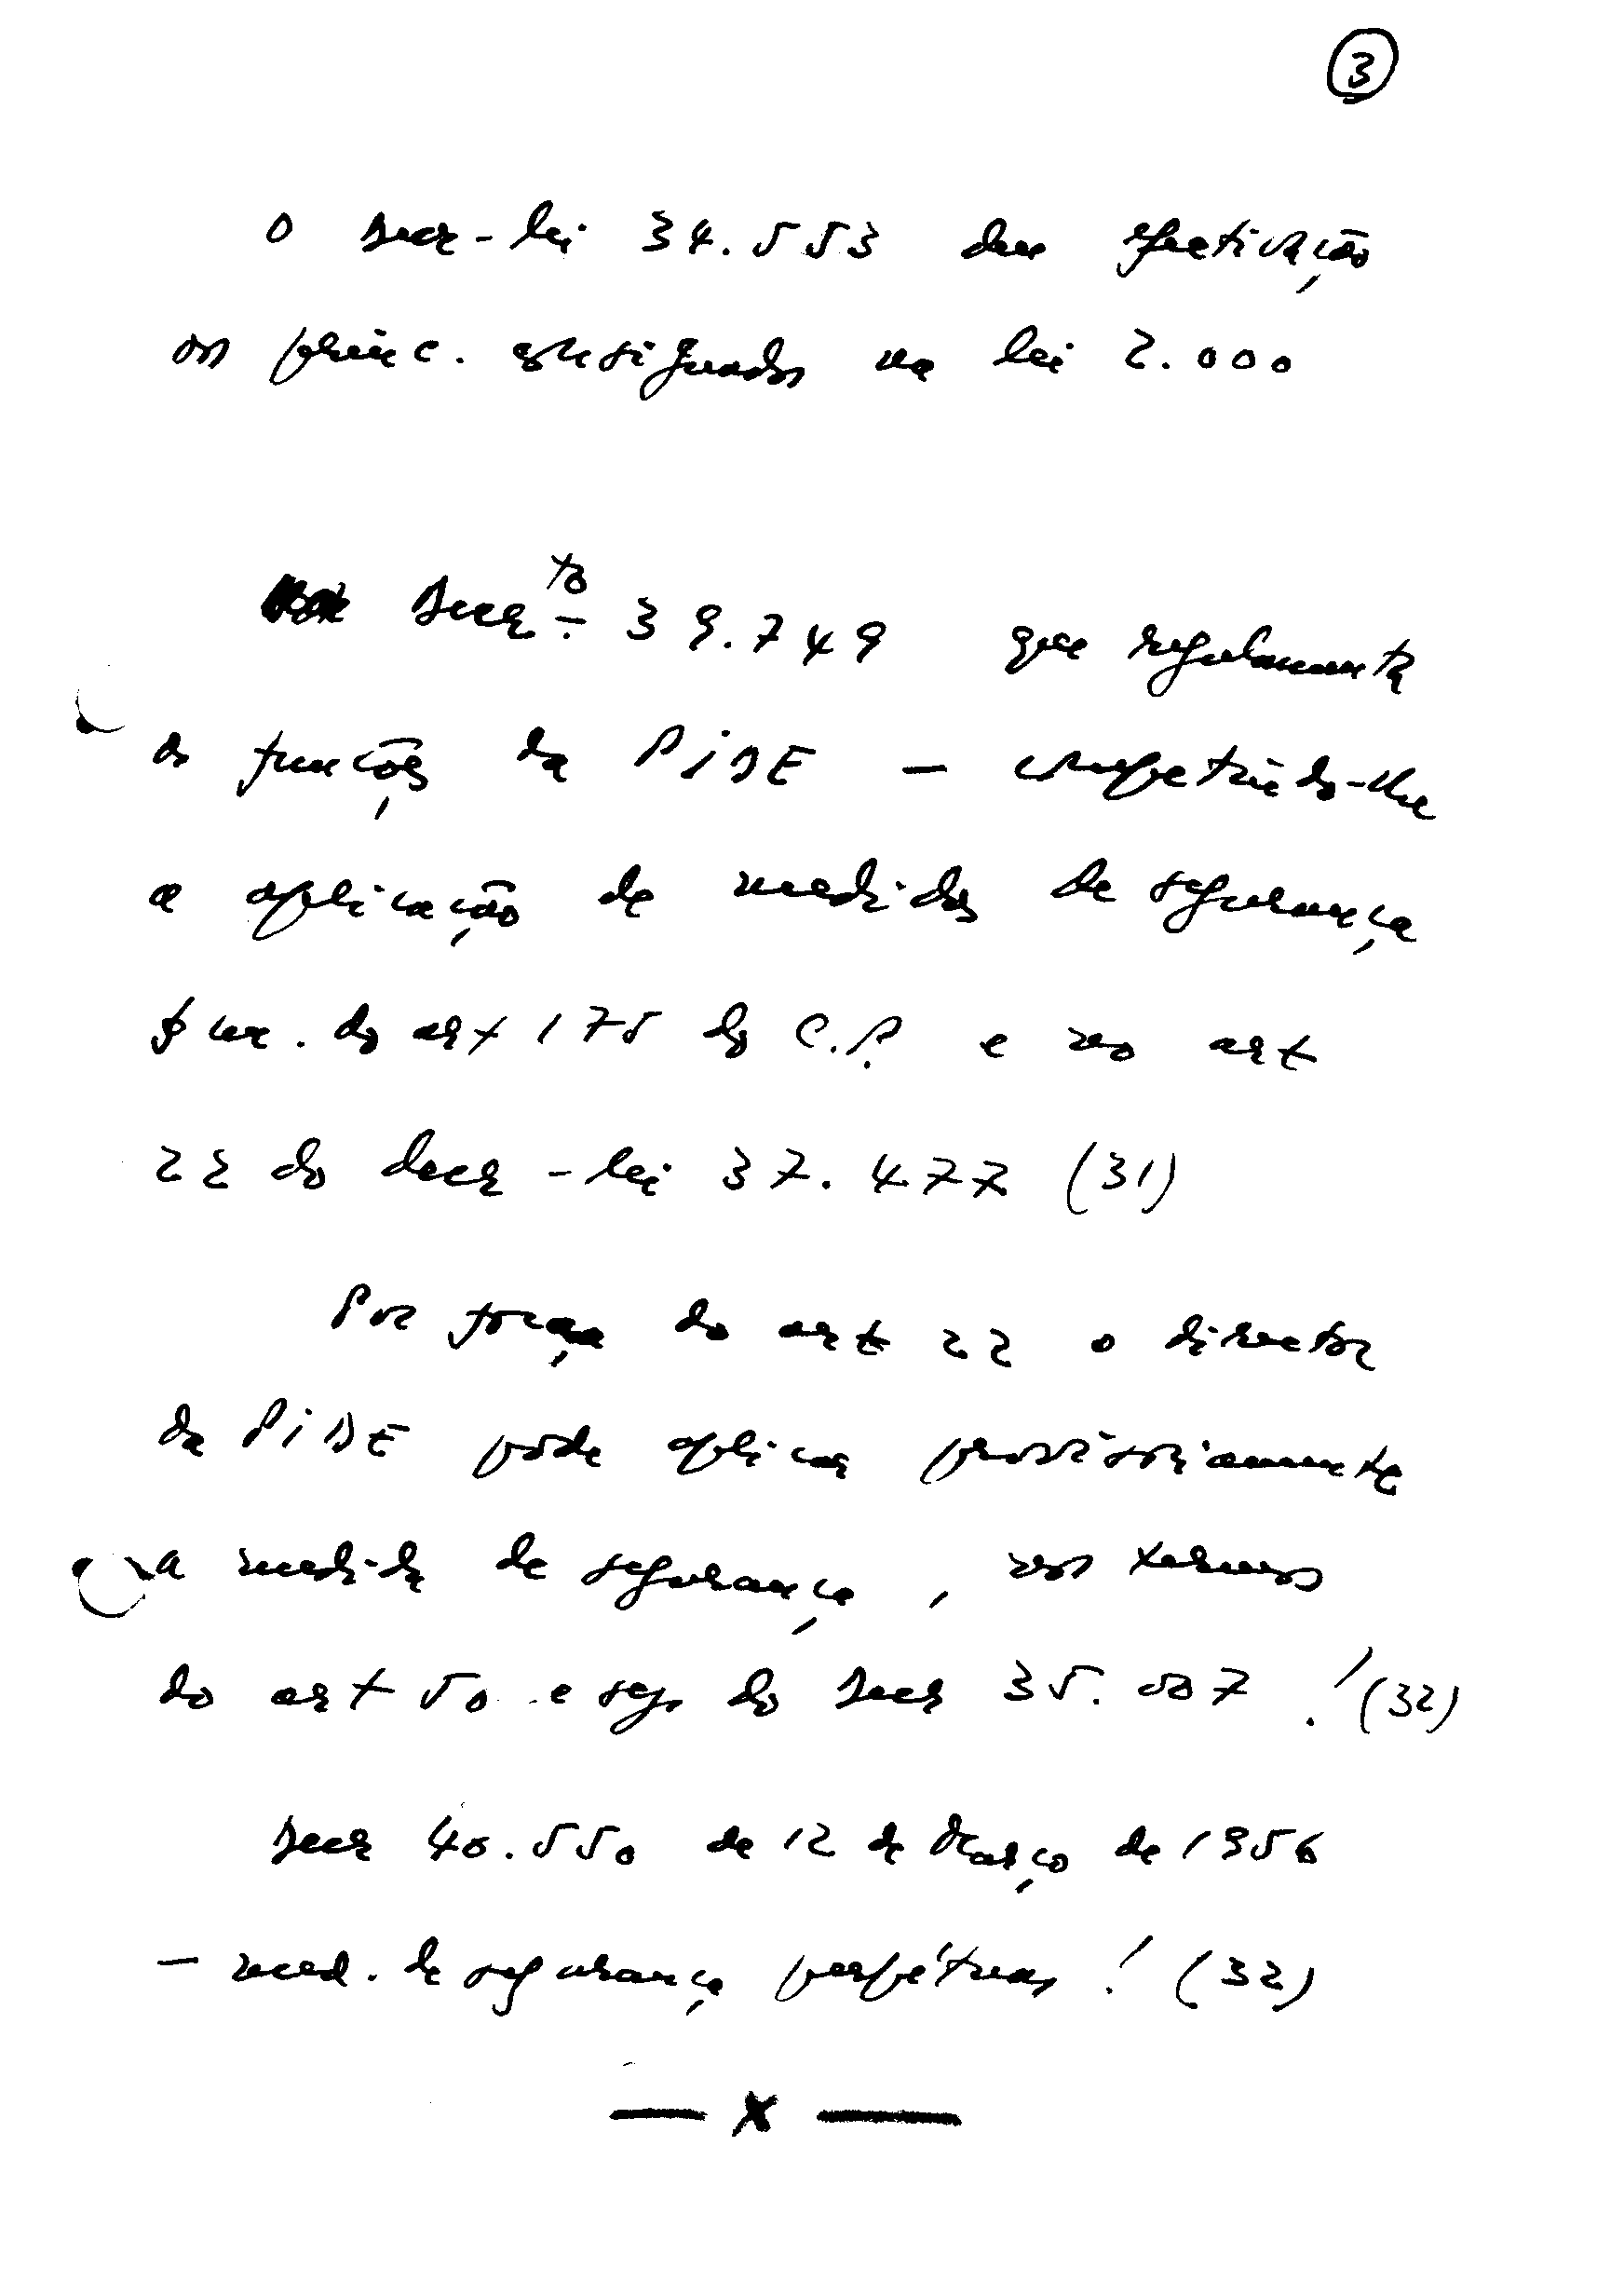 3
O Decr-lei 34.553 deu efectivação
os princ. consignados na lei 2.000
Decr.to 39.749 que regulamenta
as funções da PIDE — competindo-lhe
a aplicação de medidas de segurança
§ un. do art 175 do C.P. e no art
22 do decr-lei 37.477 (31)
Por força do art 22 o director
da PIDE pode aplicar provisoriamente
a medida de segurança, nos termos
do art 50 e seg. do Decr 35.007 ! (32)
Decr 40.550 de 12 de Março de 1956
— med. de segurança perpétuas ! (32)
— x —